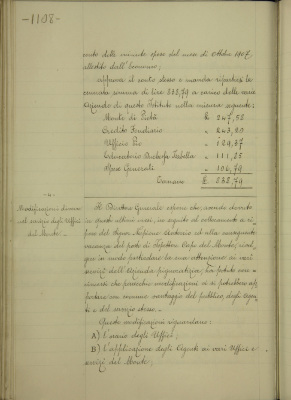 -1108-
conto delle minute spese del mese di Ottobre 1907,
allestito dall'Economo;
approva il conto stesso e manda ripartirsi la
somma di lire 838,79 a carico delle varie
Aziende di questo Istituto nella misura seguente:
Monte di Pietà £ 247,58
Credito Fondiario " 243,20
Ufficio Pio " 129,37
Educatorio Duchessa Isabella " 111,85
Spese Generali " 106,79
Sommano £ 838,79
Modificazioni
al servizio degli Uffici
del Monte.
Il Direttore Generale espone che, avendo dovuto
in questi ultimi mesi, in seguito al collocamento a ri-
poso del Signor
vacanza del posto di Ispettore Capo del Monte,
in modo particolare la sua attenzione ai vari
servizi dell'Azienda pignoratizia, ha potuto con-
vincersi che parecchie modificazioni vi si potrebbero ap-
portare con vantaggio del pubblico, degli
e del servizio stesso.
Queste modificazioni riguardano:
A) L'orario degli Uffici;
B) L'applicazione degli Agenti ai vari Uffici e
servizi del Monte;